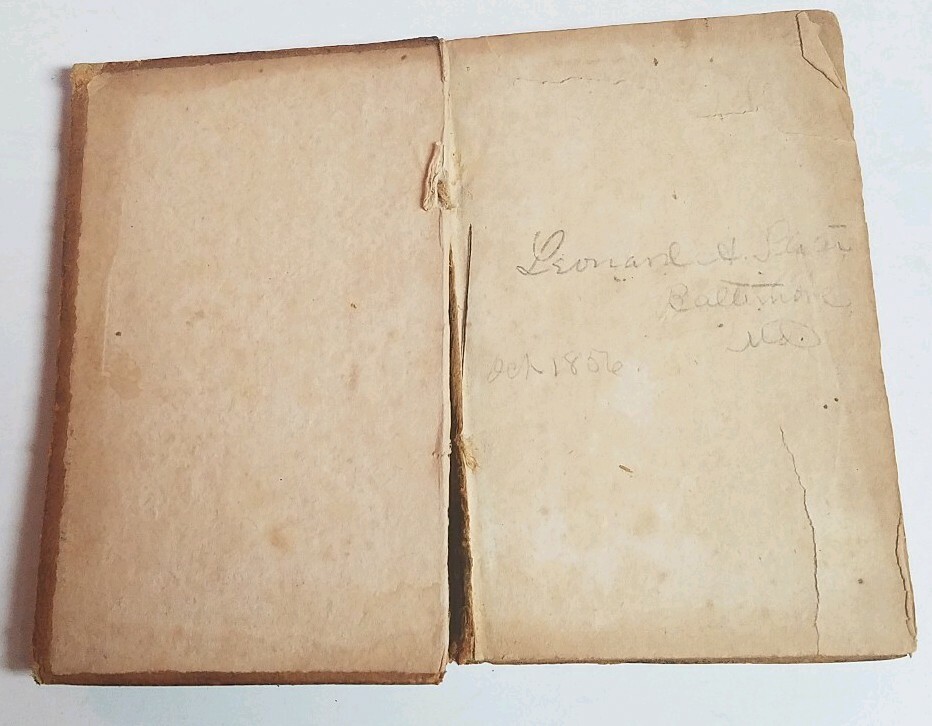 Leonard A.
Baltimore
Md
Oct 1856.